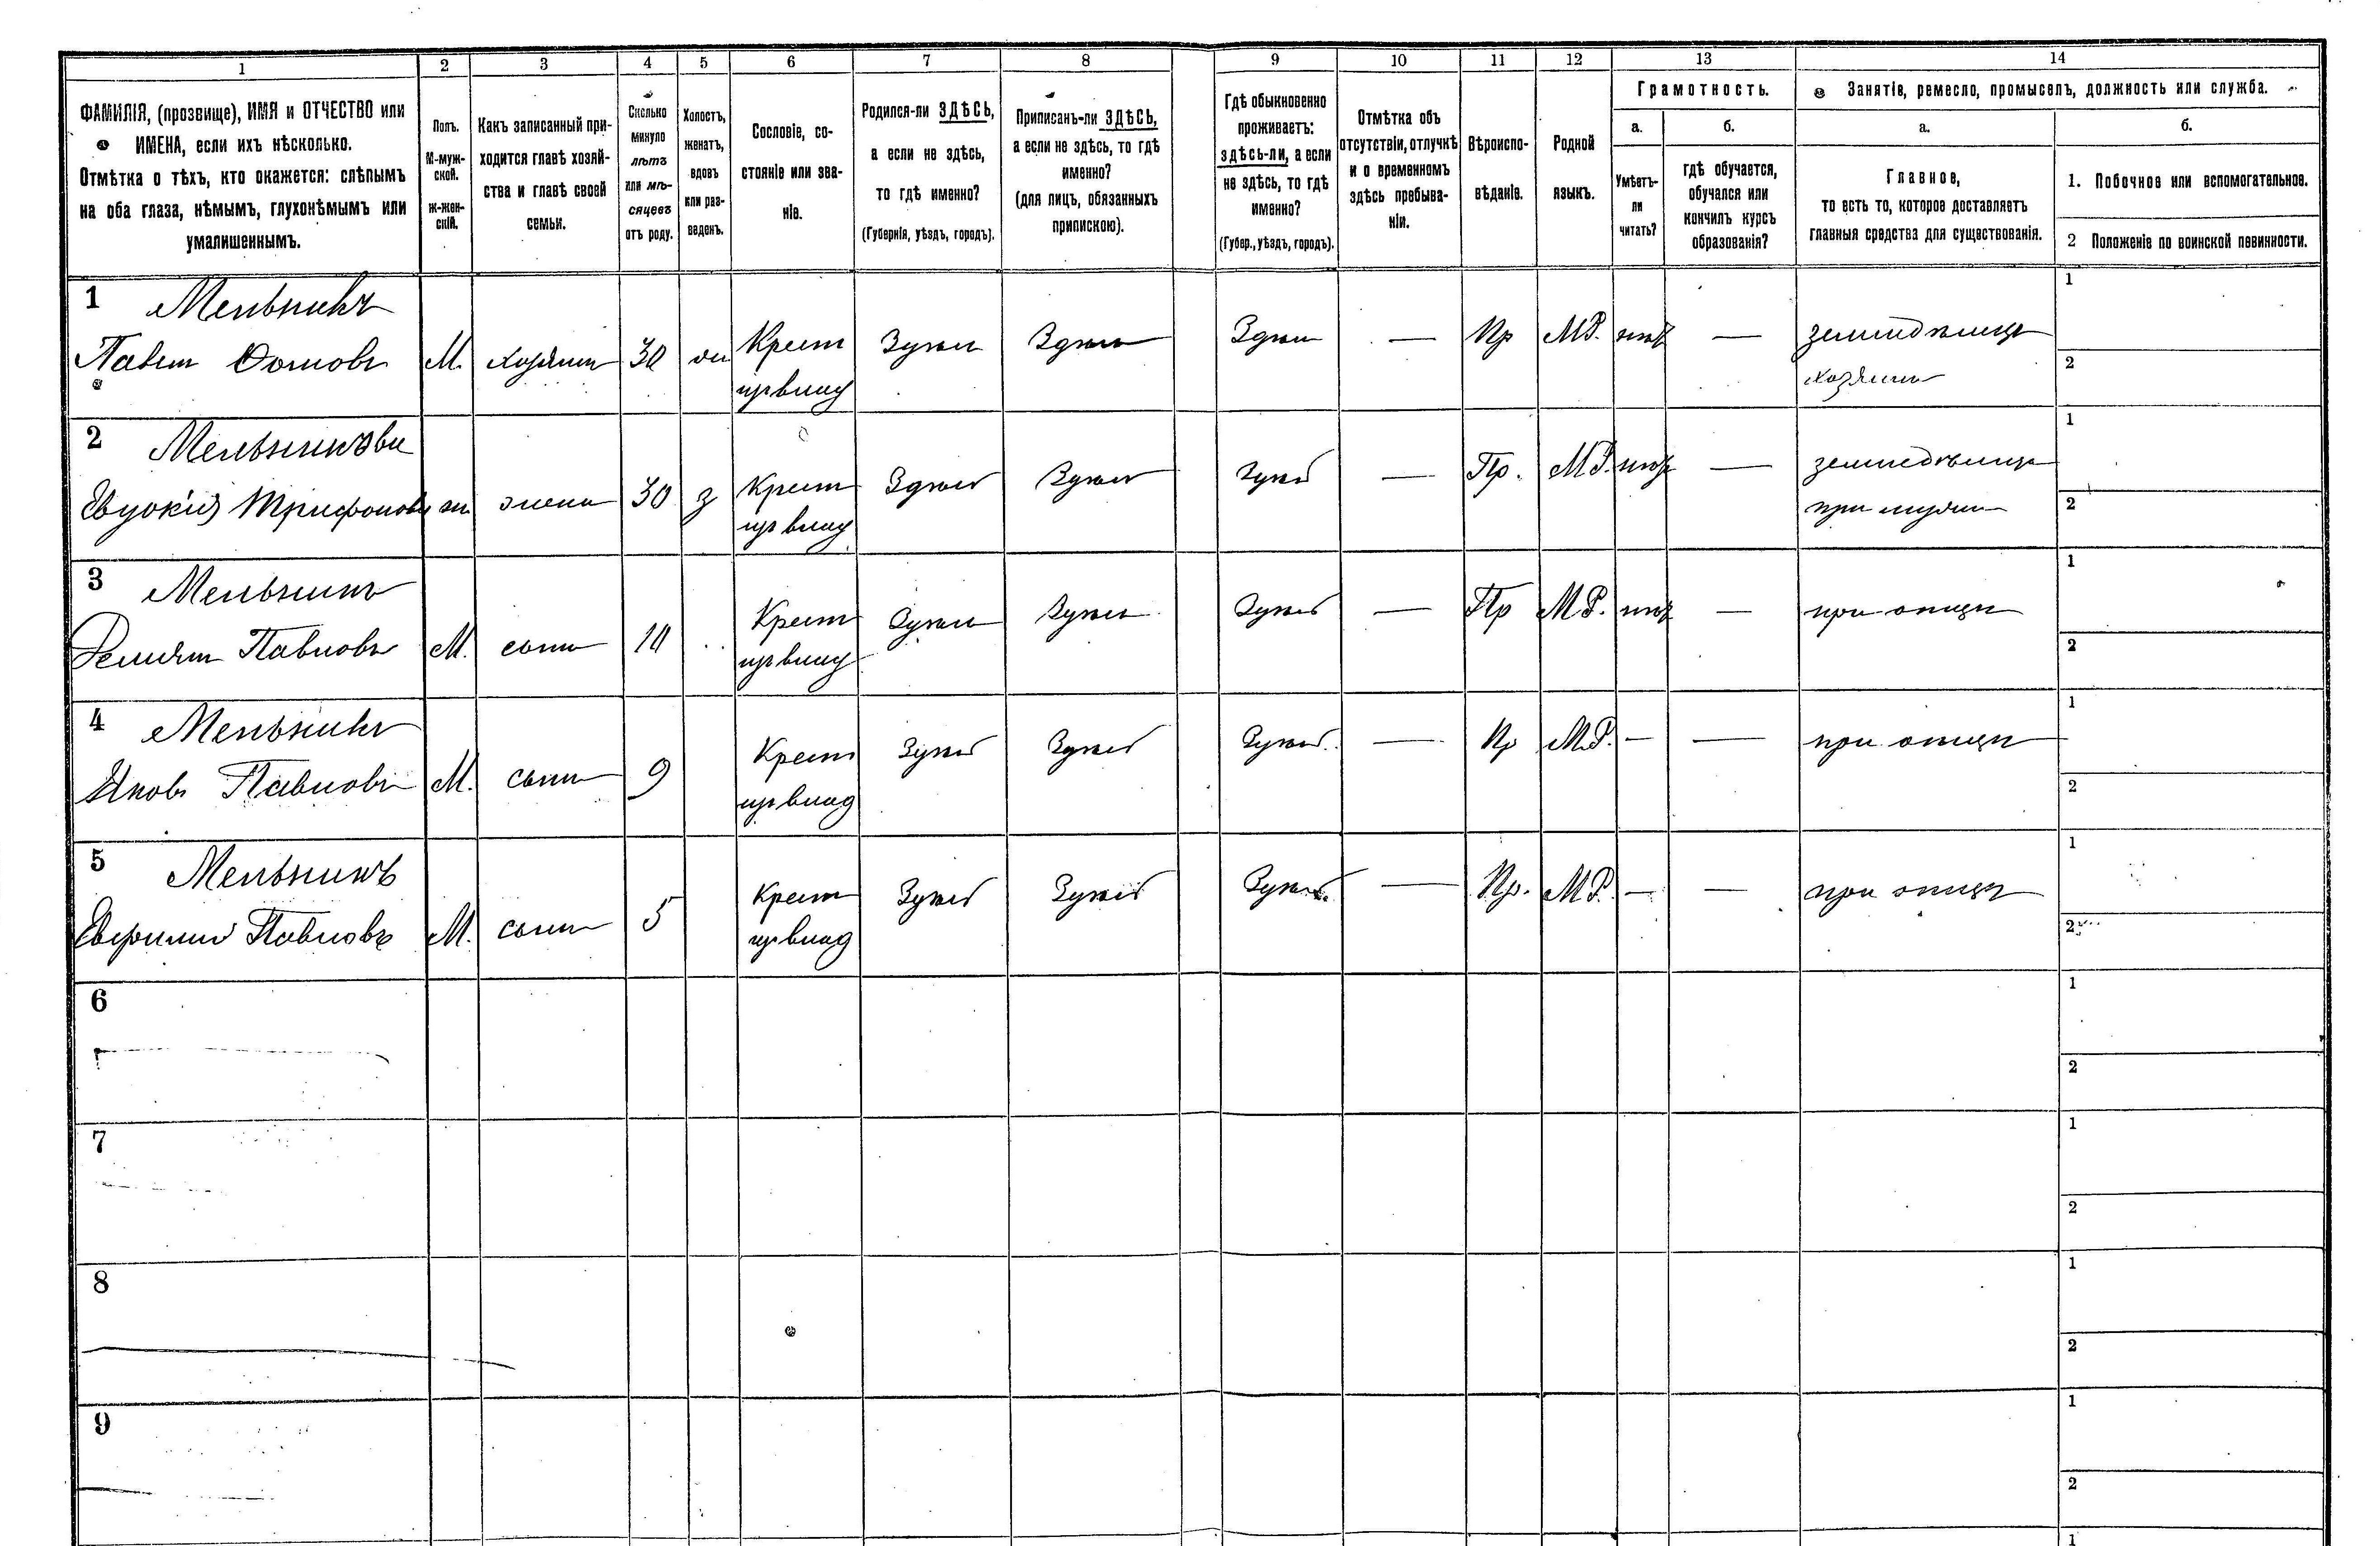 1 2 3 4 5 6 7 8 9 10 11 12 13 14
ФАМИЛІЯ, (прозвище), ИМЯ и ОТЧЕСТВО или
ИМЕНА, если ихъ нѣсколько.
Отмѣтка о тѣхъ, кто окажется: слѣпымъ
на оба глаза, нѣмымъ, глухонѣмымъ или
умалишеннымъ.
Полъ.
М-муж-
ской.
ж-жен-
скій.
Какъ записанный при-
ходится главѣ хозяй-
ства и главѣ своей
семьи.
Сколько
минуло
лѣтъ
или мѣ-
сяцевъ
отъ роду.
Холостъ,
женатъ,
вдовъ
или раз-
веденъ.
Сословіе, со-
стояніе или зва-
ніе.
Родился-ли ЗДѢСЬ,
а если не здѣсь,
то гдѣ именно?
(Губернія, уѣздъ, городъ).
Приписанъ-ли ЗДѢСЬ,
а если не здѣсь, то гдѣ
именно?
(для лицъ, обязанныхъ
припискою).
Гдѣ обыкновенно
проживаетъ:
здѣсь-ли, а если
не здѣсь, то гдѣ
именно?
(Губер., уѣздъ, городъ).
Отмѣтка объ
отсутствіи, отлучкѣ
и о временномъ
здѣсь пребыва-
ніи.
Вѣроиспо-
вѣданіе.
Родной
языкъ.
Грамотность.
а.
Умѣетъ-
ли
читать?
б.
гдѣ обучается,
обучался или
кончилъ курсъ
образованія?
Занятіе, ремесло, промыселъ, должность или служба.
а.
Главное,
то есть то, которое доставляетъ
главныя средства для существованія.
б.
1. Побочное или вспомогательное.
2 Положеніе по воинской повинности.
1 Мельникъ
Павелъ Фомовъ М. хозяинъ 30 жен Крест Здѣсь Здѣсь Здѣсь — Пр МР. нѣт — земледѣлецъ 1
изъ влад хозяинъ 2
2 Мельникова
Евдокія Трифонова ж. жена 30 з Крест Здѣсь Здѣсь Здѣсь — Пр. МР. нѣт — земледѣлецъ 1
изъ влад при мужѣ 2
3 Мельникъ
Демьян Павловъ М. сынъ Крест Здѣсь Здѣсь Здѣсь — Пр МР. нѣт — при отцѣ 1
изъ влад 2
4 Мельникъ
Яковъ Павловъ М. сынъ 9 Крест Здѣсь Здѣсь Здѣсь — Пр МР. — — при отцѣ 1
изъ влад 2
5 Мельникъ
Евфимій Павловъ М. сынъ 5 Крест Здѣсь Здѣсь Здѣсь — Пр. МР. — — при отцѣ 1
изъ влад 2
6 1
2
7 1
2
8 1
2
9 1
2
1